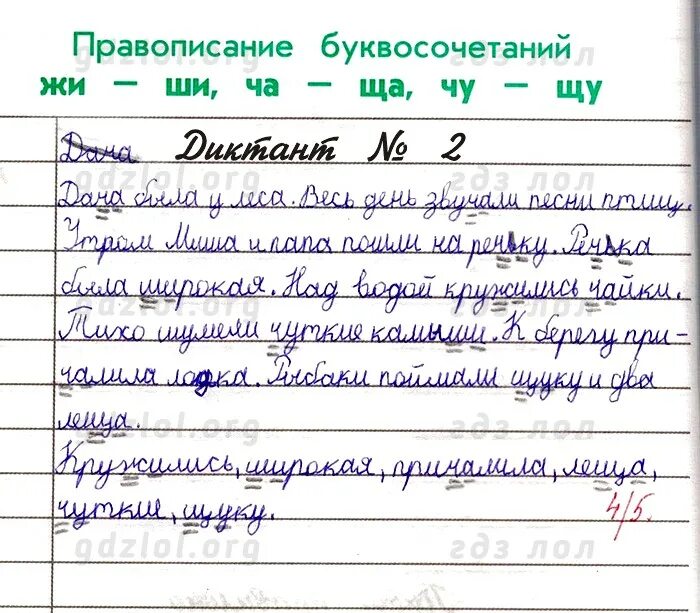 Правописание буквосочетаний
жи – ши, ча – ща, чу – щу
Дача Диктант № 2
Дача была у леса. Весь день звучали песни птиц.
Утром Миша и папа пошли на речьку. Речька
была широкая. Над водой кружились чайки.
Тихо шумели чуткие камыши. К берегу при-
чалила лодка. Рыбаки поймали щуку и два
леща.
Кружились, широкая, причалила, леща,
чуткие, щуку.
4/5.